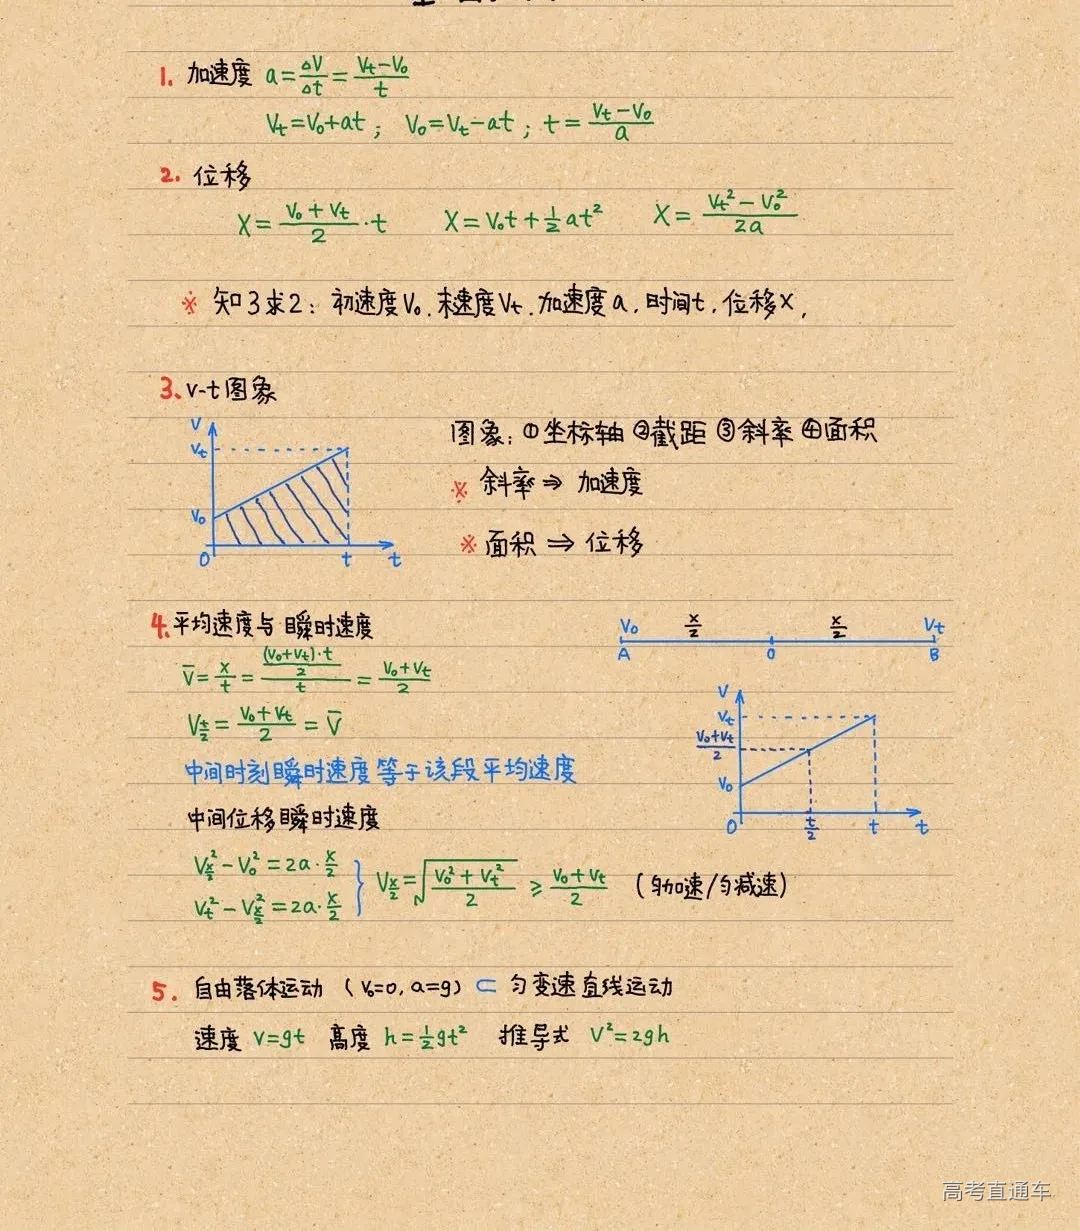 1. 加速度 a=ΔV/Δt=(Vt-V₀)/t
Vt=V₀+at; V₀=Vt-at; t=(Vt-V₀)/a
2. 位移
X=(V₀+Vt)/2·t X=V₀t+½at² X=(Vt²-V₀²)/2a
※ 知3求2: 初速度V₀.末速度Vt.加速度a.时间t.位移X,
3、v-t图象
V
Vt
V₀
0 t t
图象:①坐标轴②截距③斜率④面积
※ 斜率⇒加速度
※ 面积⇒位移
4.平均速度与瞬时速度
V₀ x/2 x/2 Vt
A 0 B
V̄=x/t=((V₀+Vt)·t/2)/t=(V₀+Vt)/2
V(t/2)=(V₀+Vt)/2=V̄
V
Vt
(V₀+Vt)/2
V₀
0 t/2 t t
中间时刻瞬时速度等于该段平均速度
中间位移瞬时速度
V(x/2)²-V₀²=2a·x/2
Vt²-V(x/2)²=2a·x/2
} V(x/2)=√((V₀²+Vt²)/2)⩾(V₀+Vt)/2 (匀加速/匀减速)
5. 自由落体运动(V₀=0,a=g)⊂匀变速直线运动
速度 v=gt 高度 h=½gt² 推导式 V²=2gh
高考直通车